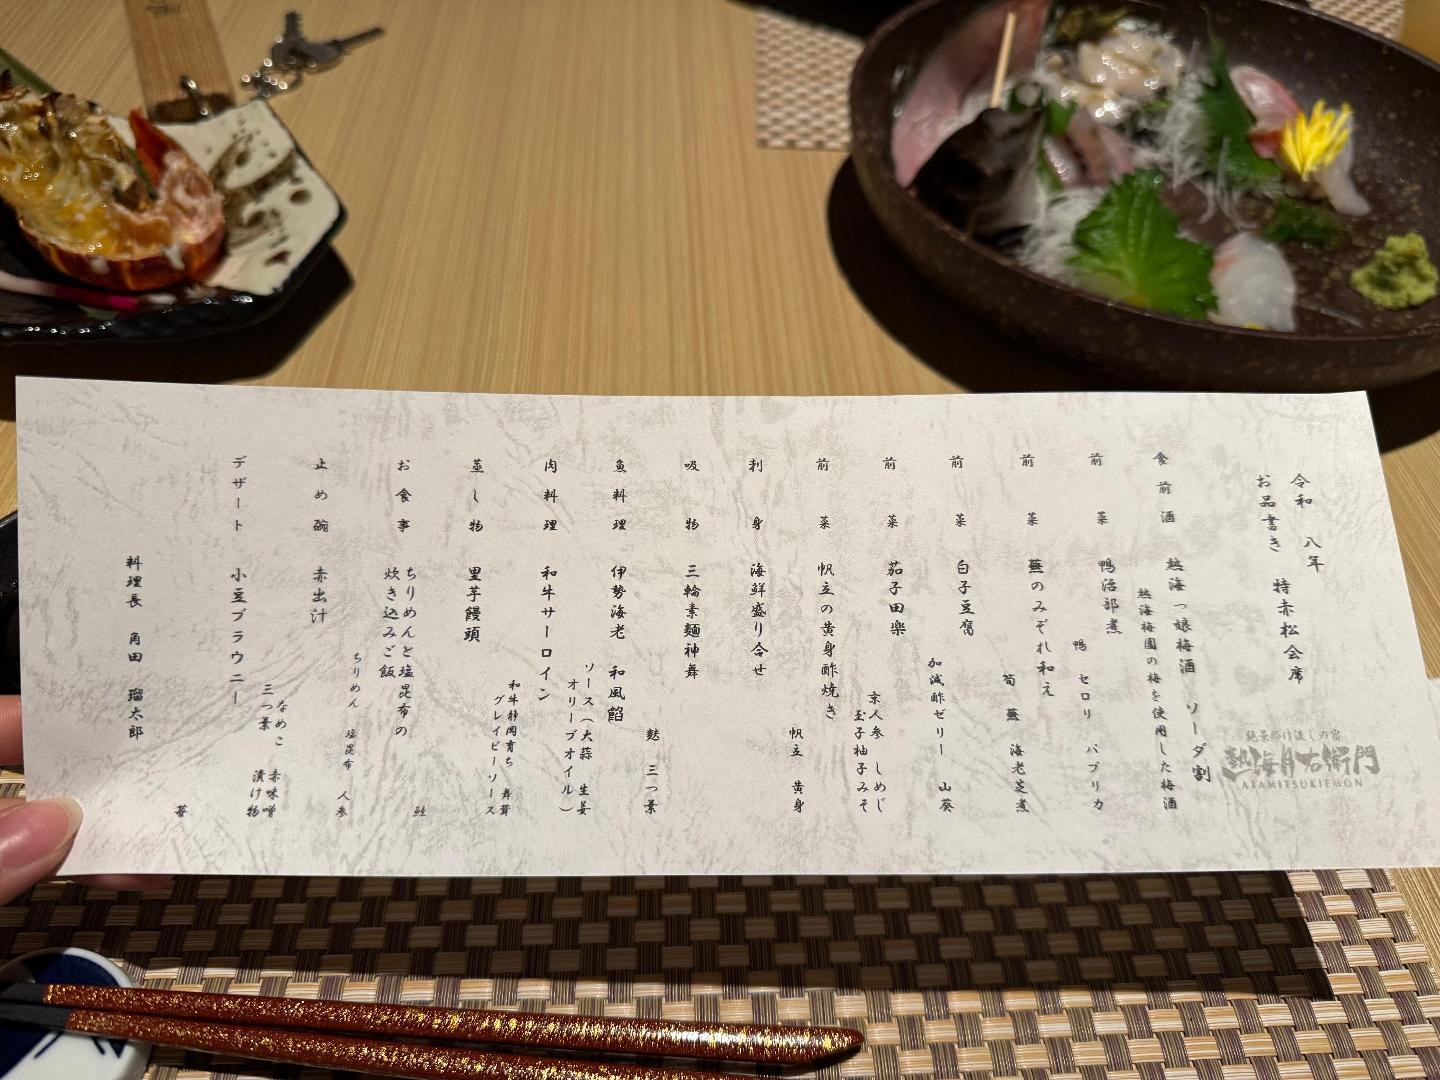 令和 八年 特赤松会席
お品書き
絶景かけ流しの宿
熱海月右衛門
ATAMITSUKIEMON
食前酒 熱海っ娘梅酒 ソーダ割
熱海梅園の梅を使用した梅酒
前菜 鴨治部煮
鴨 セロリ パプリカ
前菜 蕪のみぞれ和え
筍 蕪 海老芝煮
前菜 白子豆腐
加減酢ゼリー 山葵
前菜 茄子田楽
京人参 しめじ
玉子柚子みそ
前菜 帆立の黄身酢焼き
帆立 黄身
刺身 海鮮盛り合せ
吸物 三輪素麺神舞
麩 三つ葉
魚料理 伊勢海老 和風餡
ソース(大蒜 生姜
オリーブオイル)
肉料理 和牛サーロイン
和牛静岡育ち 舞茸
グレイビーソース
蒸し物 里芋饅頭
鮭
お食事 ちりめんと塩昆布の
炊き込みご飯
ちりめん 塩昆布 人参
止め碗 赤出汁
なめこ 赤味噌
三つ葉 漬け物
デザート 小豆ブラウニー
苺
料理長 角田 瑠太郎